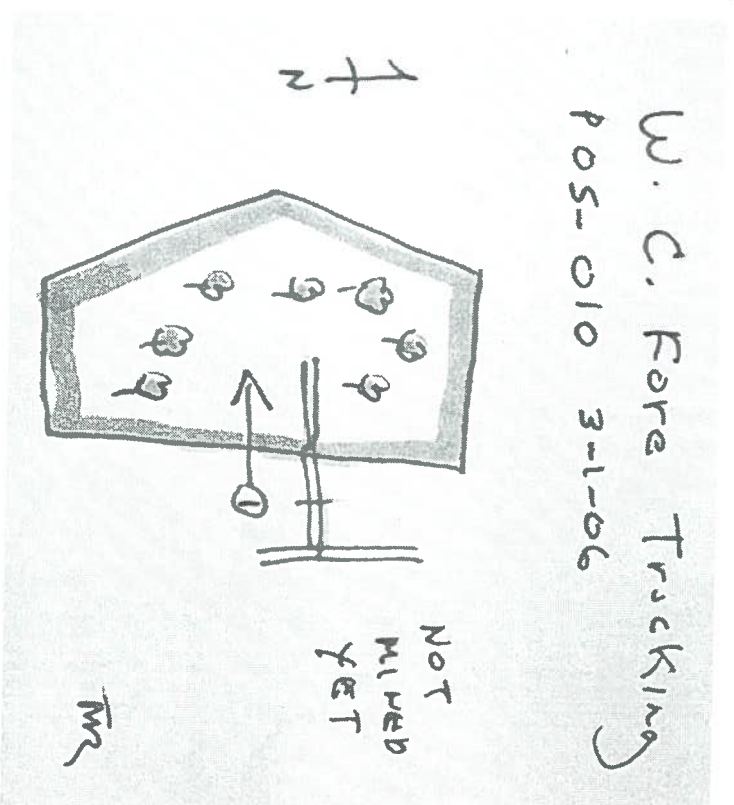 W. C. Fore Trucking
P05-010 3-1-06
N
1
NOT
MINED
YET